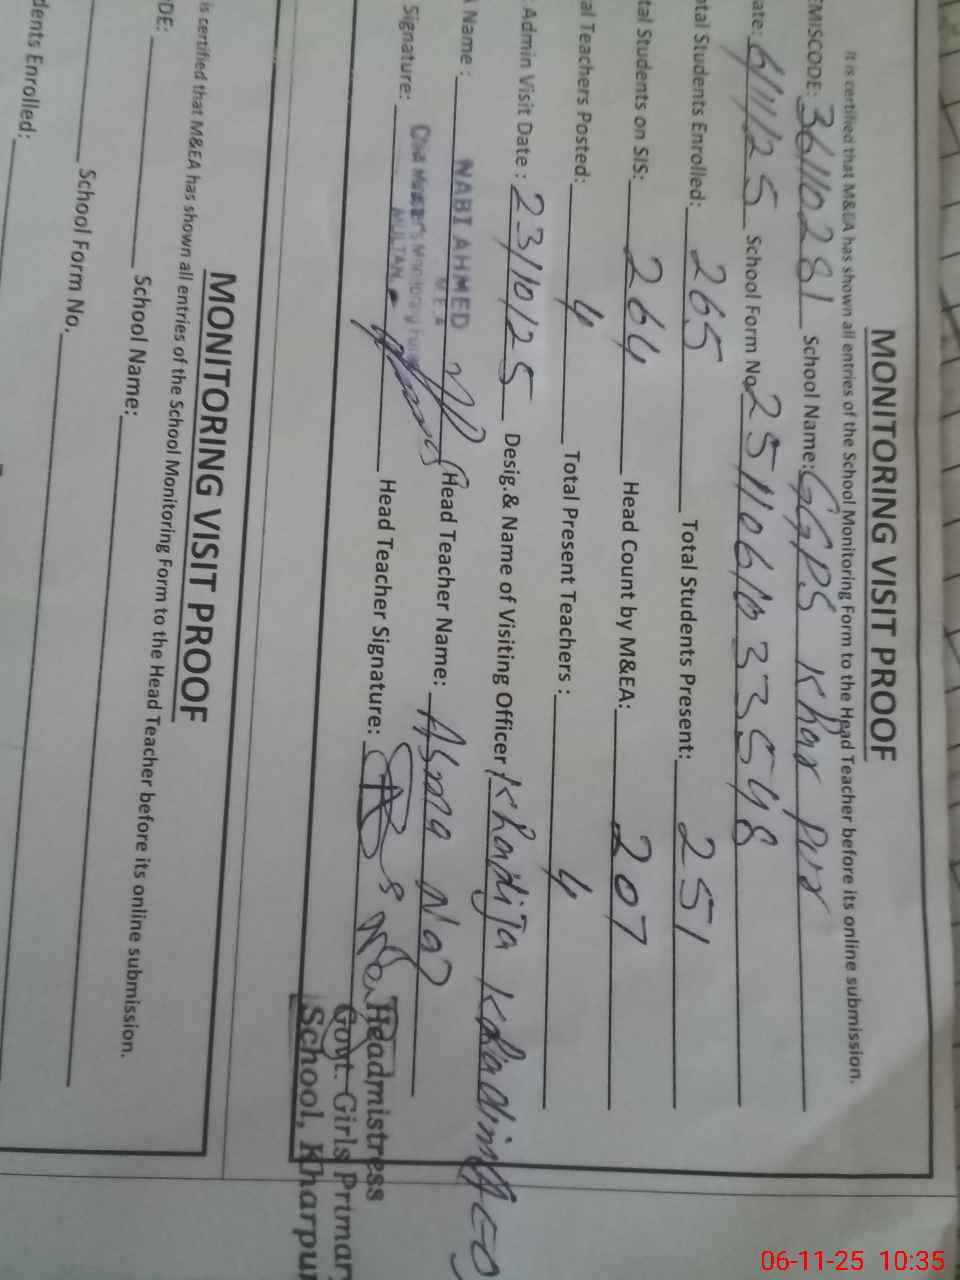 MONITORING VISIT PROOF
It is certified that M&EA has shown all entries of the School Monitoring Form to the Head Teacher before its online submission.
EMISCODE: 36110281 School Name: GGPS Khar pur
ate: 6/11/25 School Form No. 25110610 33548
otal Students Enrolled: 265 Total Students Present: 251
tal Students on SIS: 264 Head Count by M&EA: 207
al Teachers Posted: 4 Total Present Teachers : 4
Admin Visit Date : 23/10/25 Desig.& Name of Visiting Officer: Khadija Khadim AEO
Name : NABI AHMED Head Teacher Name: Asma Naz
MEA
Signature: Head Teacher Signature:
MULTAN
Headmistress
Govt. Girls Primar
School, Kharpur
MONITORING VISIT PROOF
is certified that M&EA has shown all entries of the School Monitoring Form to the Head Teacher before its online submission.
DE: School Name:
School Form No.
dents Enrolled:
06-11-25 10:35